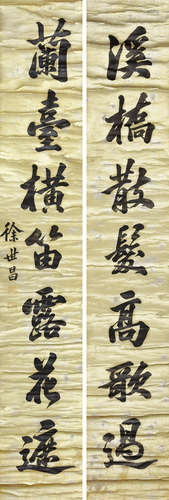 溪橋散髮高歌過
蘭臺橫笛露花遮
徐世昌